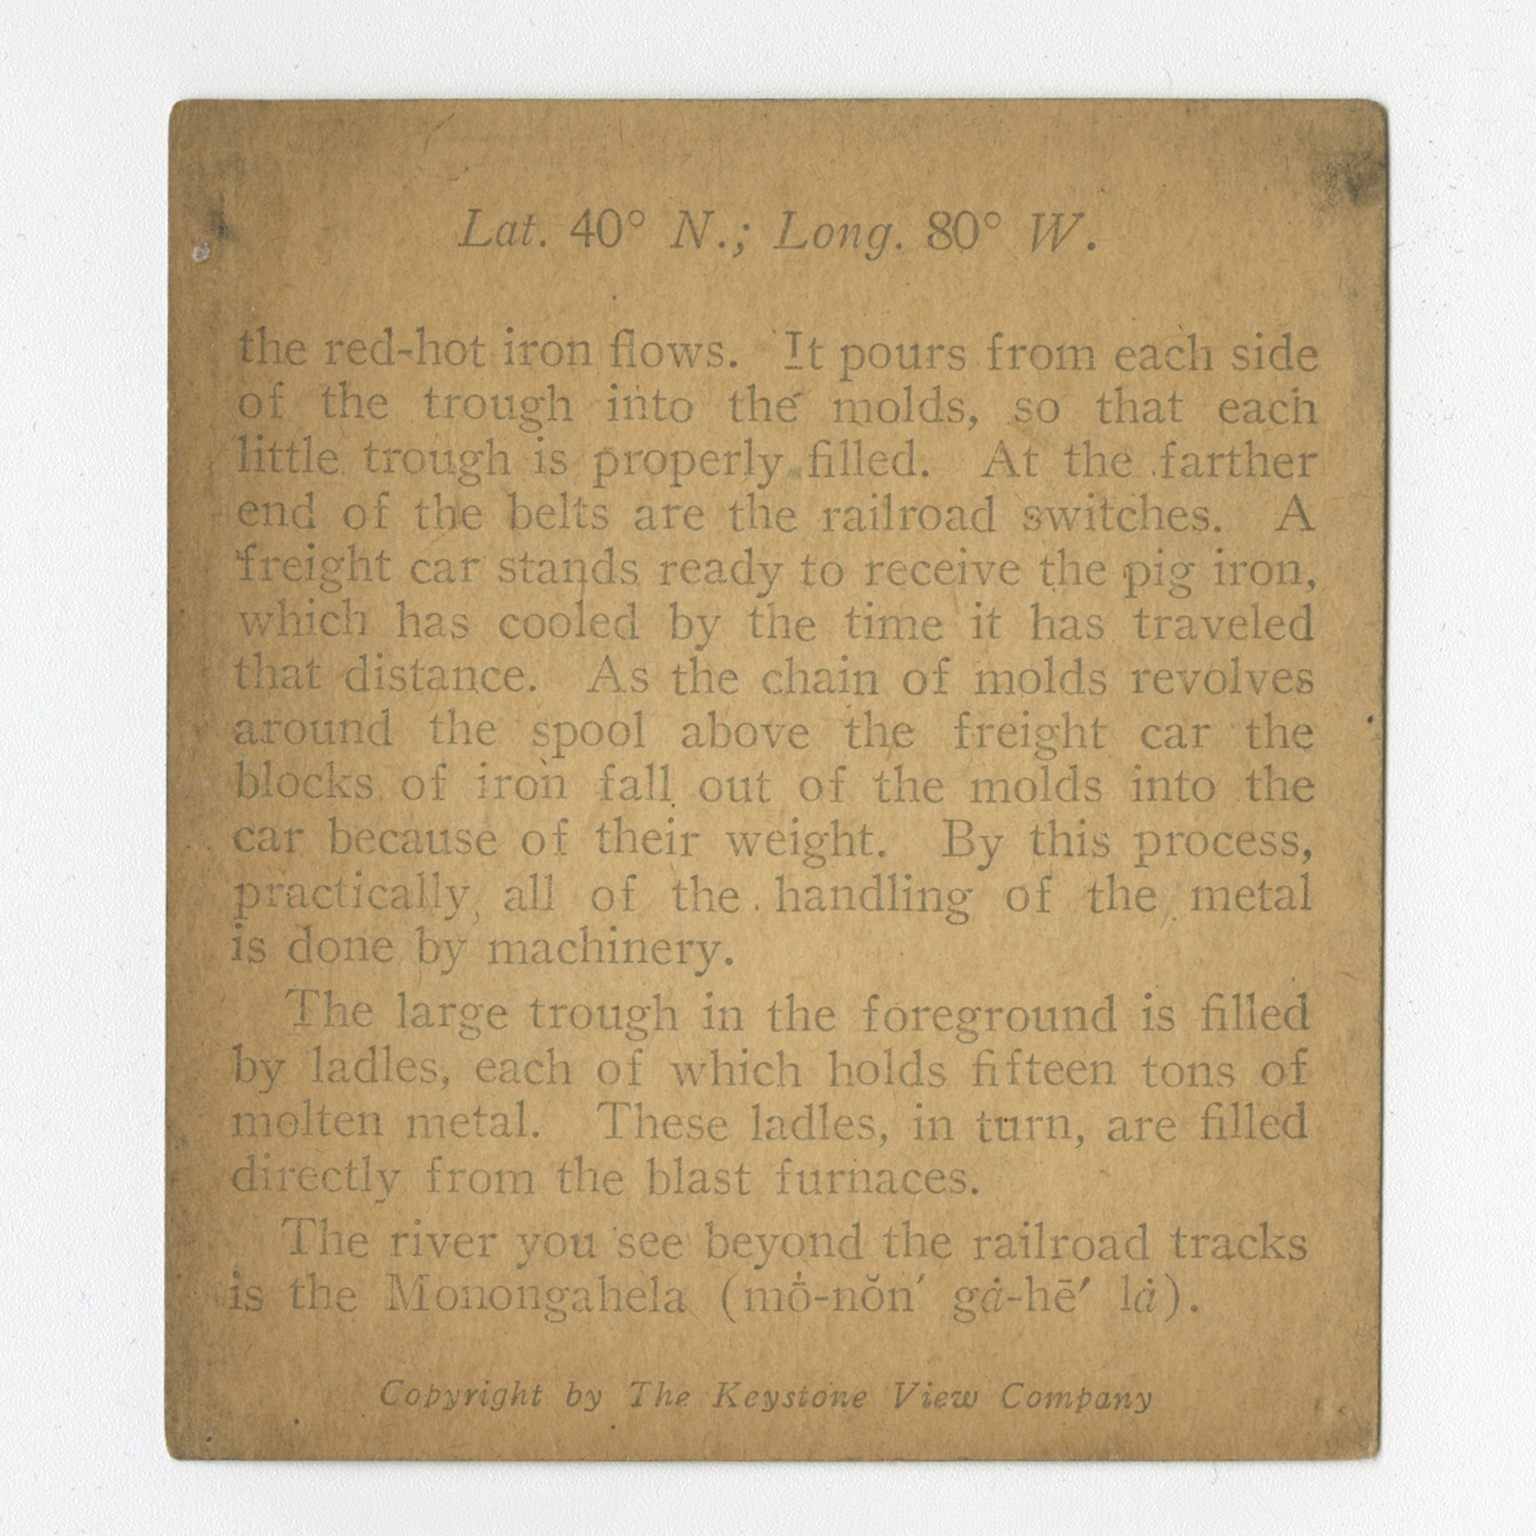 Lat. 40° N.; Long. 80° W.
the red-hot iron flows. It pours from each side
of the trough into the molds, so that each
little trough is properly filled. At the farther
end of the belts are the railroad switches. A
freight car stands ready to receive the pig iron,
which has cooled by the time it has traveled
that distance. As the chain of molds revolves
around the spool above the freight car the
blocks of iron fall out of the molds into the
car because of their weight. By this process,
practically all of the handling of the metal
is done by machinery.
The large trough in the foreground is filled
by ladles, each of which holds fifteen tons of
molten metal. These ladles, in turn, are filled
directly from the blast furnaces.
The river you see beyond the railroad tracks
is the Monongahela (mō̇-nŏn′ gȧ-hē′ lȧ).
Copyright by The Keystone View Company